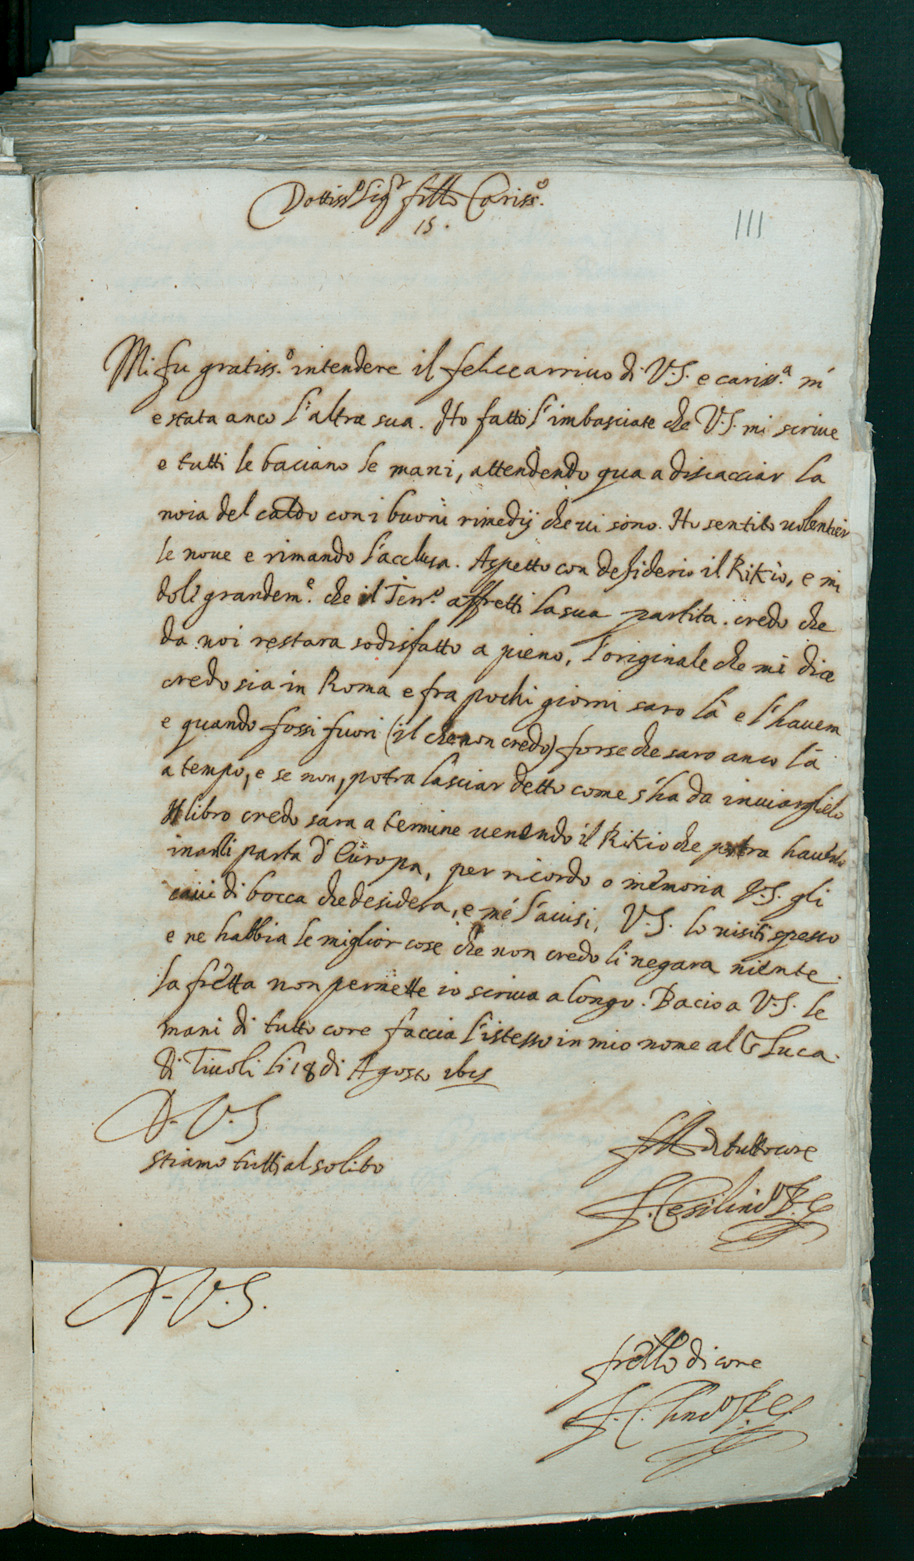 Dottiss.º Sigʳ frłło Cariss.º
15.
111
Mi fu gratiss.º intendere il felice arrivo di V.S. e cariss.ª m'
e stata anco l'altra sua. Ho fatto l'imbasciate che V.S. mi scrive
e tutti le baciano le mani, attendendo qua a discacciar la
noia del caldo con i buoni rimedij che vi sono. Ho sentito volentier
le nove e rimando l'acclusa. Aspetto con desiderio il Kikio, e mi
dole grandem.e che il Terr.º affretti la sua partita. credo che
da noi restara sodisfatto a pieno, l'originale che mi dice
credo sia in Roma e fra pochi giorni saro là e l'havem
e quando fossi fuori (il che non credo) forse che saro anco là
a tempo, e se non, potra lasciar detto come s'ha da inviarglielo
Il libro credo sara a termine venendo il Kikio che potra haverlo
parta d'Europa, per ricordo o memoria V.S. gli
cavi di bocca che desidera, e me l'avisi, V.S. lo visiti spesso
e ne habbia le miglior cose che non credo li negara niente.
la fretta non permette io scriva a longo. Bacio a V.S. le
mani di tutto core faccia l'istesso in mio nome al S.r Luca.
Di Tivoli li 18 di Agosto 1611
D. V.S
stiamo tutti al solito
frłło di tutto core
F. Cesi Linc.º P.
D. V.S.
frełło di core
F. C. Linc.º P.